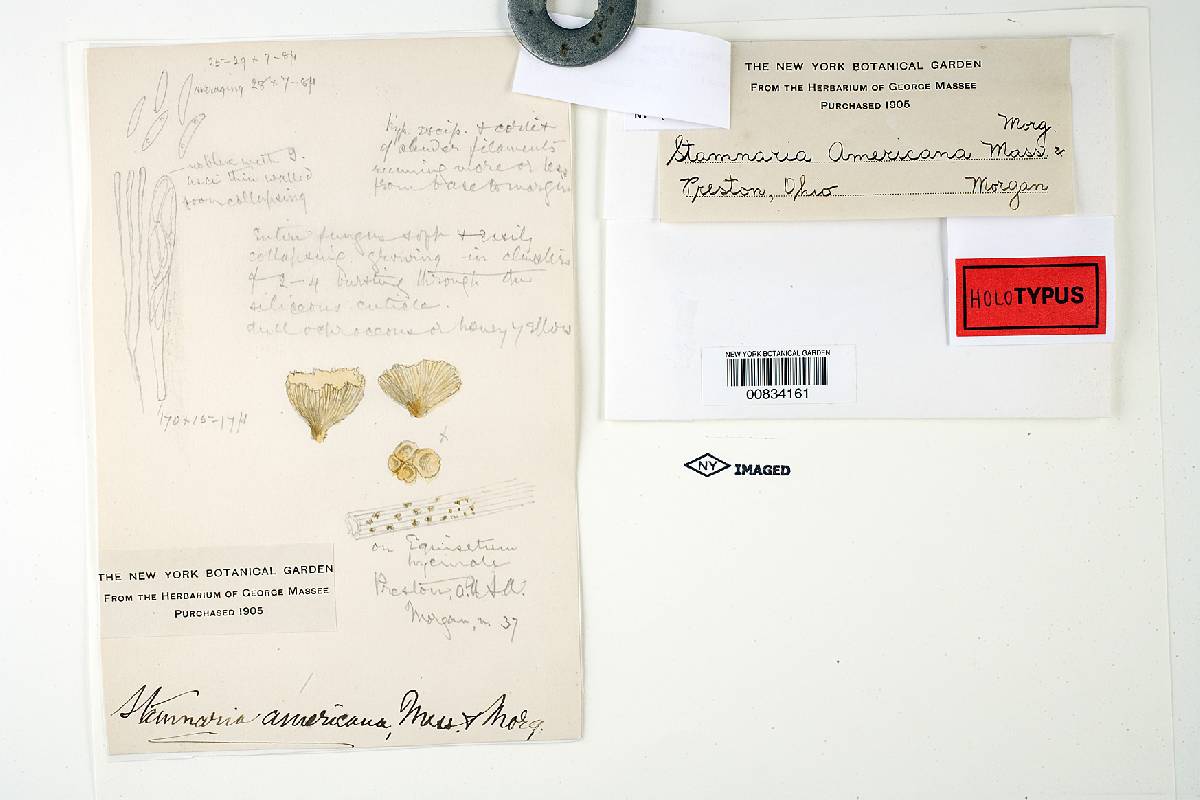 25-29 x 7-8µ
averaging 28 x 7-8µ
hyp. & excip. & cortex
of slender filaments
running more or less
from base to margin
very thin walled
soon collapsing
Entire fungus soft & easily
collapsing growing in clusters
of 2-4 bursting through the
siliceous cuticle.
dull ochraceous or honey yellow
170 x 15-17µ
on Equisetum
hyemale
Preston, O. U.S.A.
Morgan, n. 37
THE NEW YORK BOTANICAL GARDEN
FROM THE HERBARIUM OF GEORGE MASSEE
PURCHASED 1905
Stamnaria americana, Mass. & Morg.
THE NEW YORK BOTANICAL GARDEN
FROM THE HERBARIUM OF GEORGE MASSEE
PURCHASED 1905
Morg
Stamnaria Americana Mass &
Preston, Ohio Morgan
HOLOTYPUS
NEW YORK BOTANICAL GARDEN
00834161
NY IMAGED